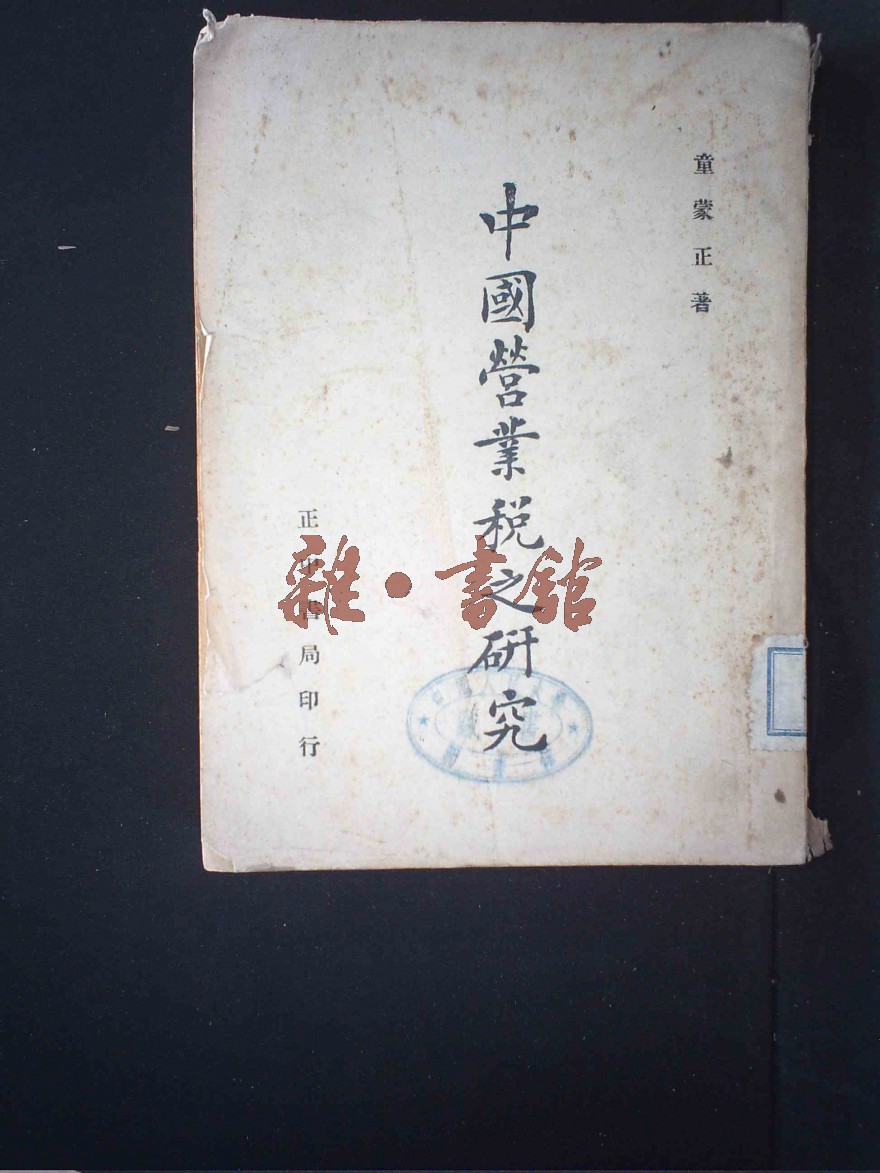 童蒙正著
中國營業税之研究
正中書局印行
雜·書館